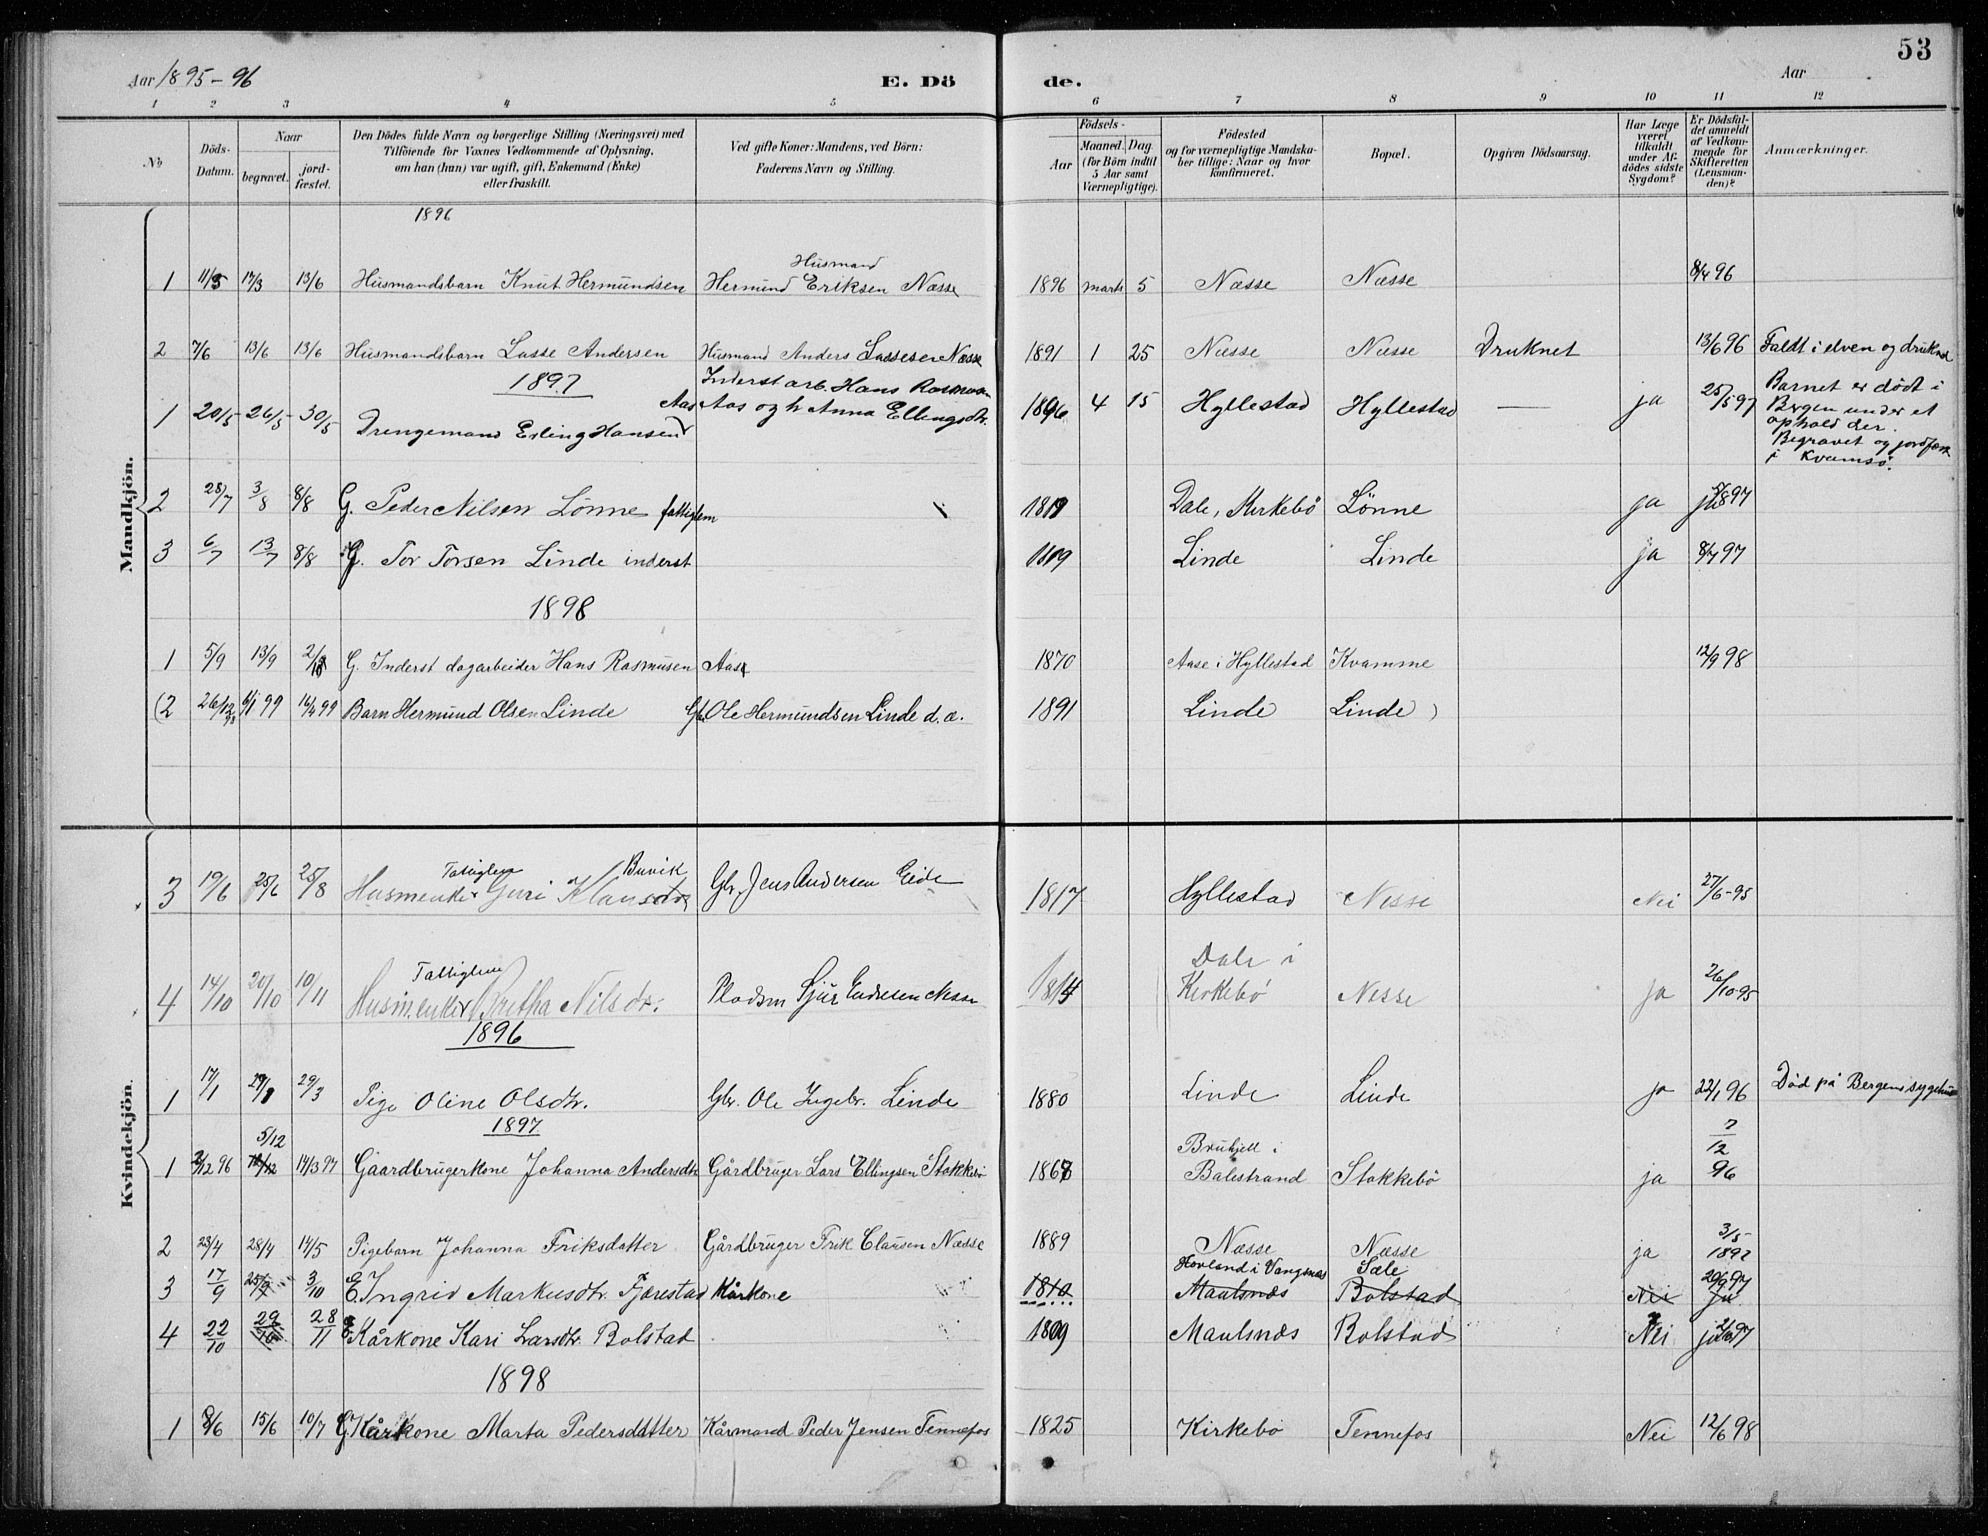 53
Aar 1895-96
E. Dö de.
Aar
1 2 3 4 5 6 7 8 9 10 11 12
No
Döds-Datum.
Naar
begravet.
jord-fæstet.
Den Dödes fulde Navn og borgerlige Stilling (Næringsvei) med
Tilföiende for Voxnes Vedkommende af Oplysning,
om han (hun) var ugift, gift, Enkemand (Enke)
eller fraskilt.
Ved gifte Koner: Mandens, ved Börn:
Faderens Navn og Stilling.
Födsels-
Aar
Maaned. Dag.
(for Börn indtil
5 Aar samt
Værnepligtige).
Födested
og for værnepligtige Mandska-
ber tillige: Naar og hvor
konfirmeret.
Bopæl.
Opgiven Dödsaarsag.
Har Læge
været
tilkaldt
under Af-
dödes sidste
Sygdom?
Er Dödsfal-
det anmeldt
af Vedkom-
mende for
Skifteretten
(Lensman-
den)?
Anmærkninger.
Mandkjön.
1896
1 11/3 17/3 13/6 Husmandsbarn Knut Hermundsen Husmand Hermund Eriksen Næsse 1896 marts 5 Næsse Næsse 8/4 96
2 7/6 13/6 13/6 Husmandsbarn Lasse Andersen Husmand Anders Lassesen Næsse 1891 1 25 Næsse Næsse Druknet 13/6 96 Faldt i elven og druknet
1897
1 20/5 26/5 30/5 Drengemand Erling Hansen Aas Inderst arb. Hans Rasmussen Aas og h Anna Ellingsdtr. 1896 4 15 Hyllestad Hyllestad — ja 25/5 97 Barnet er dödt i
Bergen under et
ophold der.
Begravet og jordfæst
i Kvamsö.
2 28/7 3/8 8/8 G. Peder Nilsen Lönne fattiglem 1819 Dale, Kirkebö Lönne ja 97
3 6/7 13/7 8/8 G. Tor Torsen Linde inderst Linde Linde ja 8/7 97
1898
1 5/9 13/9 2/10 G. Inderst dagarbeider Hans Rasmusen Aase 1870 Aase i Hyllestad Kvamme 12/9 98
(2 26/12 98 6/1 99 16/4 99 Barn Hermund Olsen Linde Gbr. Ole Hermundsen Linde d. æ. 1891 Linde Linde )
Kvindekjön.
3 19/6 25/6 25/8 Fattiglem Husmenke Guri Klausdtr Buvik Gbr. Jens Andersen Eide 1817 Hyllestad Nesse Nei 27/6-95
4 14/10 20/10 10/11 Fattiglem Husmenke Britha Nilsdr. Pladsm Sjur Endresen Nesse 1814 Dale i Kirkebö Nesse ja 26/10-95
1896
1 17/1 29/3 Pige Oline Olsdtr. Gbr. Ole Ingebr. Linde 1880 Linde Linde ja 22/1 96 Död på Bergens sygehus
1897
1 2/12 96 5/12 14/3 97 Gaardbrugerkone Johanna Andersdtr Gårdbruger Lars Ellingsen Stokkebö Balestrand Stokkebö ja 7/12 96
2 23/4 28/4 14/5 Pigebarn Johanna Eriksdatter Gårdbruger Erik Clausen Næsse 1889 Næsse Næsse ja 3/5 1897
3 17/9 25/9 3/10 E. Ingrid Markusdtr. Fjærestad Kårkone 1810 Hovland i Vangsnæs Maulsnæs Sæle Bolstad Nei Ja
4 22/10 29/10 28/11 E Kårkone Kari Larsdtr. Bolstad 1809 Maulsnæs Bolstad Nei
1898
1 8/6 15/6 10/7 G Kårkone Marta Pedersdatter Kårmand Peder Jensen Tennefos 1825 Kirkebö Tennefos Nei 12/6 98